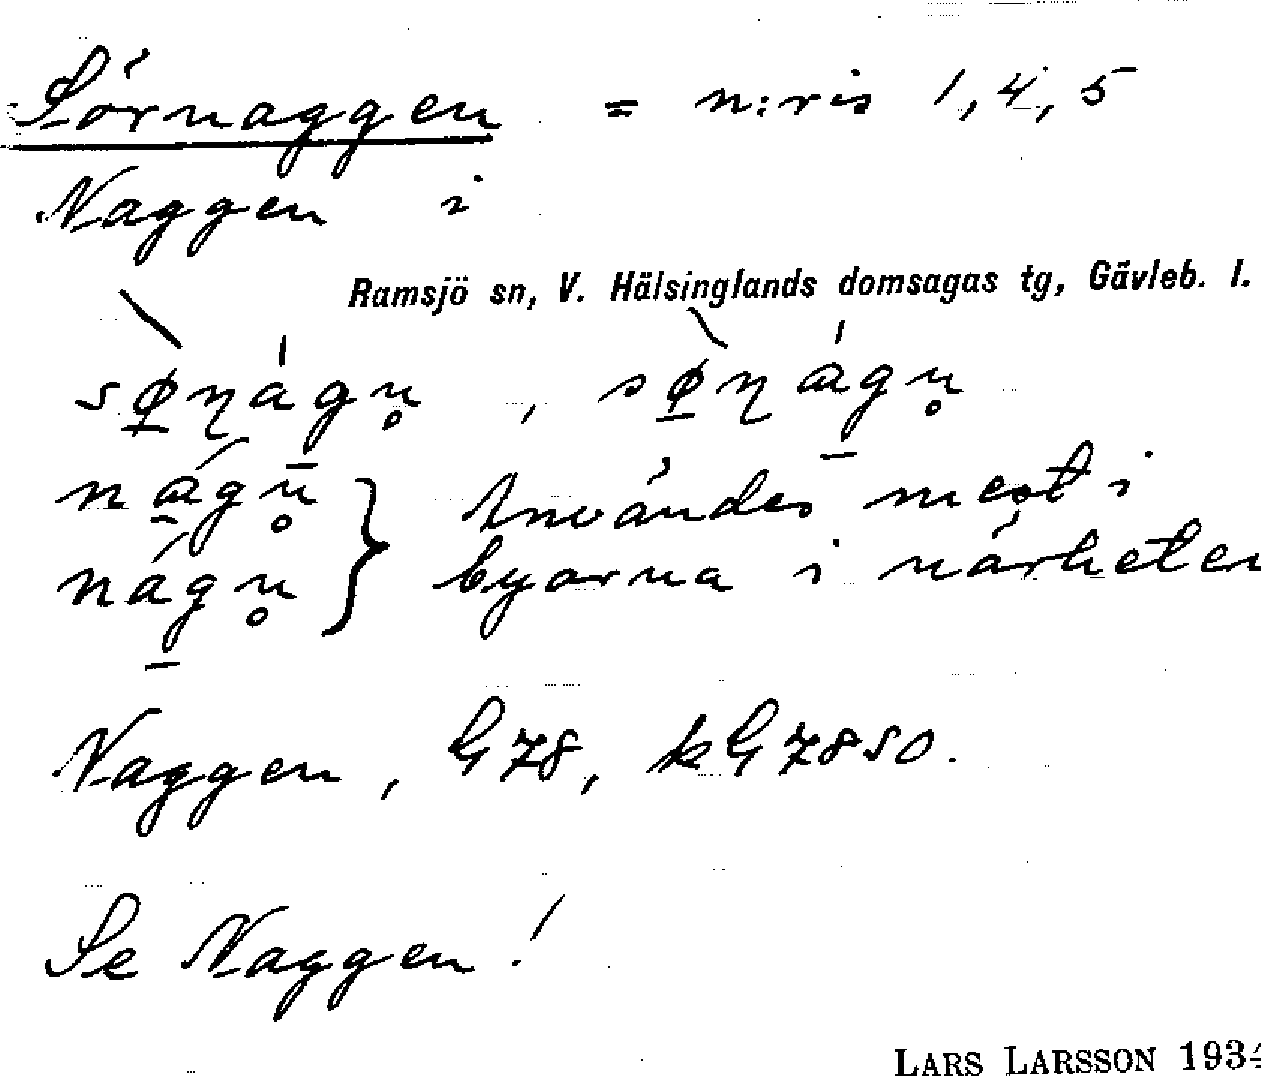 Sörnaggen = n:ris 1, 4, 5
Naggen i
Ramsjö sn, V. Hälsinglands domsagas tg, Gävleb. l.
Användes mest i
byarna i närheten
Naggen, G 78, kG 7850.
Se Naggen!
LARS LARSSON 1934